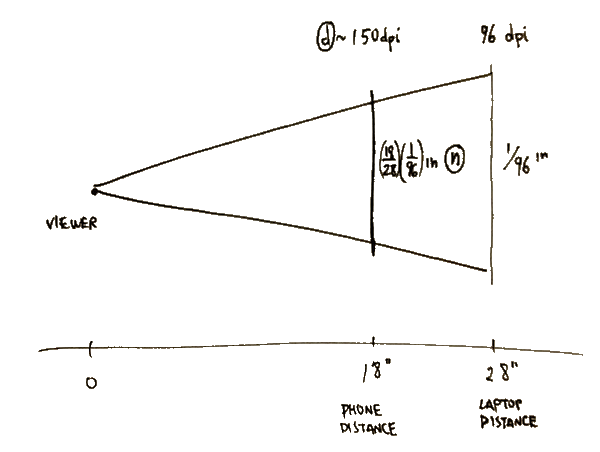 ⓓ~150dpi
96 dpi
(18/28)(1/96) in ⓝ
1/96 in
VIEWER
0
18"
28"
PHONE
DISTANCE
LAPTOP
DISTANCE